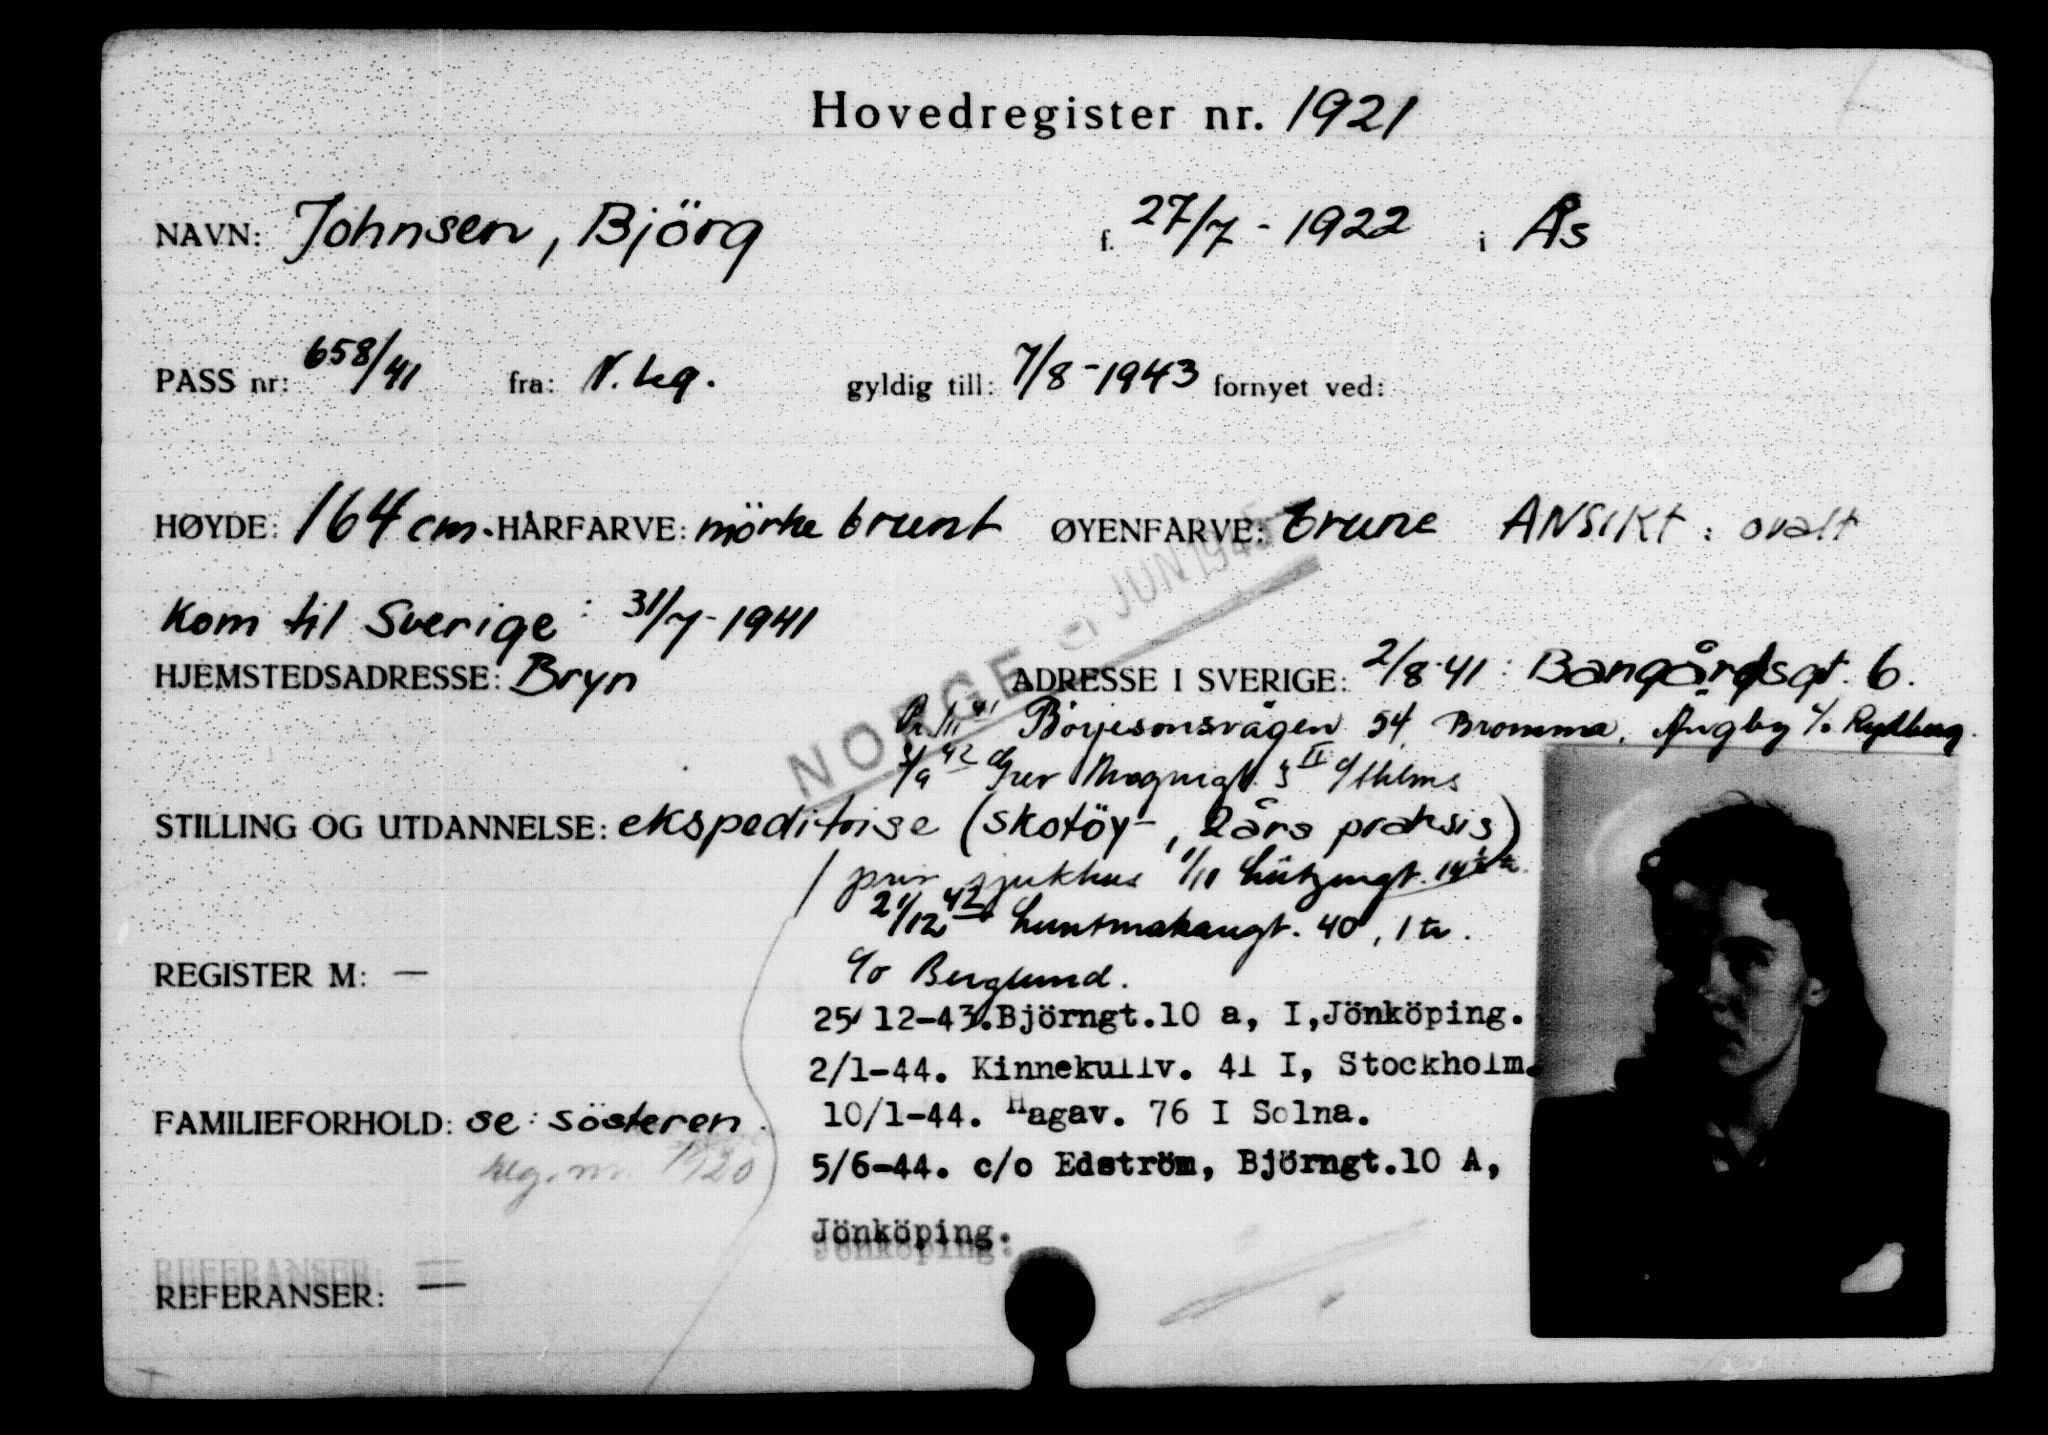 Hovedregister nr. 1921
NAVN: Johnsen, Björg f. 27/7 - 1922 i Ås
PASS nr: 658/41 fra: N. Lq. gyldig till: 7/8 - 1943 fornyet ved:
HØYDE: 164 cm. HÅRFARVE: mörke brunt ØYENFARVE: brune ANSIKT: ovalt
Kom til Sverige: 31/7 - 1941
NORGE JUN 1945
HJEMSTEDSADRESSE: Bryn ADRESSE I SVERIGE: 2/8-41: Bangårdsgt. 6.
Börjesonsvägen 54, Bromma, Ängby c/o Rydberg.
3/9 42
STILLING OG UTDANNELSE: ekspeditrise (skotöy-, 2 års praksis)
sjukhus 1/11 Lützengt. 14
21/12 42 Luntmakaregt. 40, 1 tr.
REGISTER M: —
c/o Berglund.
25/ 12-43. Björngt.10 a, I, Jönköping.
2/1-44. Kinnekullv. 41 I, Stockholm.
10/1-44. Hagav. 76 I Solna.
FAMILIEFORHOLD: se: sösteren.
reg. nr. 1920
5/6-44. c/o Edström, Björngt.10 A,
Jönköping.
REFERANSER: —